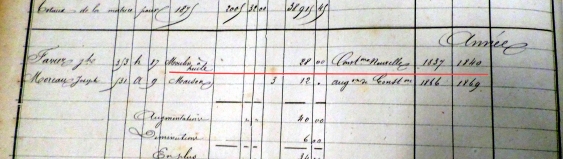 Totaux de la matrice pour 1875 2005 3200 38915 45
Année
Favier 373 h 87 Moulin à huile 28 00 Const on Nouvelle 1837 1840
Moreau Joseph 731 A 9 Maison 3 12 . aug on de Const on 1866 1869
Augmentation 40 00
Diminution 6 00
En plus 34